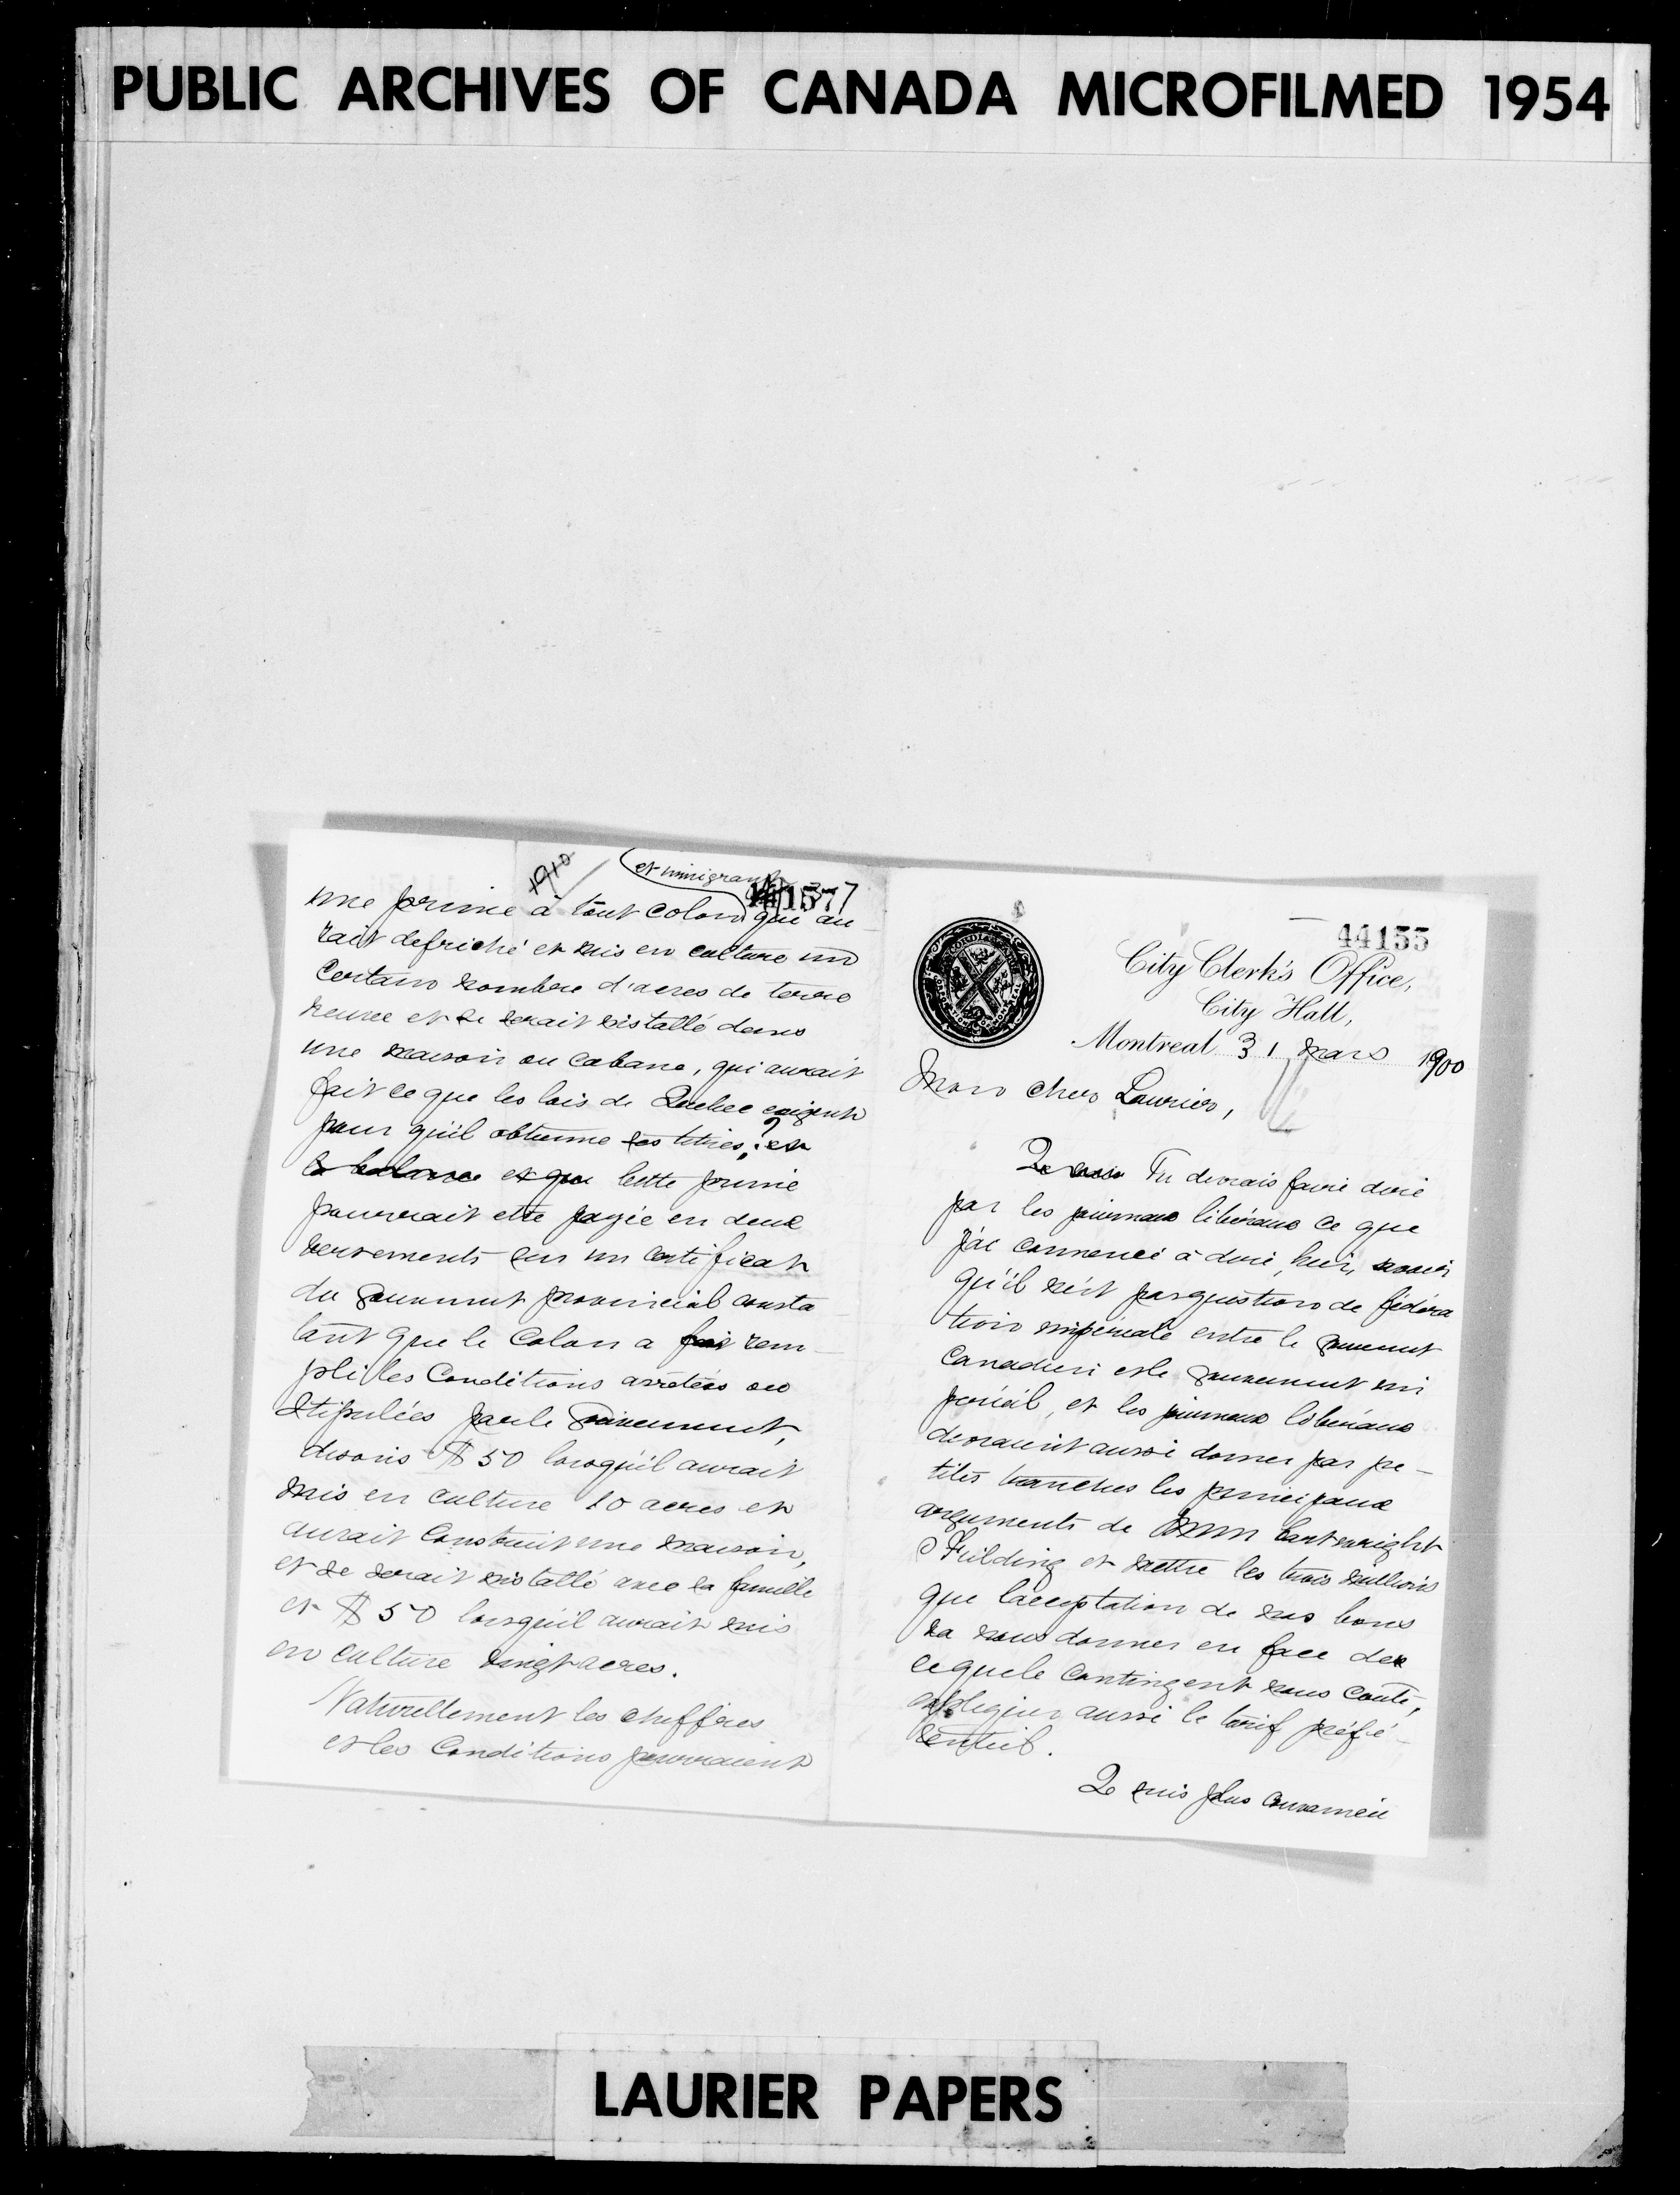 PUBLIC ARCHIVES OF CANADA MICROFILMED 1954
et immigrant
une prime à tout colon qui au
rait defriché et mis en culture un
certain nombre d'acres de terre
neuve et se serait installé dans
une maison ou cabane, qui aurait
fait ce que les lois de Quebec exigent
pour qu'il obtienne ses titres;
la balance et que cette prime
pourrait etre payée en deux
versements sur un certificat
du gouvernement provincial consta
tant que le colon a fait rem-
pli les conditions arrêtées ou
stipulées par le gouvernement,
disons $50 lorsqu'il aurait
mis en culture 10 acres et
aurait construit une maison,
et se serait installé avec sa famille
et $50 lorsqu'il aurait mis
en culture vingt acres.
Naturellement les chiffres
et les conditions pourraient
44155
City Clerk's Office,
City Hall,
Montreal 31 mars 1900
Mon cher Laurier,
Tu devrais faire dire
par les journaux libéraux ce que
j'ai commencé à dire, hier, savoir
qu'il n'est pas question de fédéra
tion impériale entre le gouvernement
canadien et le gouvernement im
périal, et les journaux libéraux
devraient aussi donner par pe-
tites tranches les principaux
arguments de MM Cartwright
& Fielding et mettre les trois millions
que l'acceptation de nos bons
va nous donner en face de
ce que le contingent nous coute,
expliquer aussi le tarif préfé-
rentiel.
Je suis plus convaincu
LAURIER PAPERS